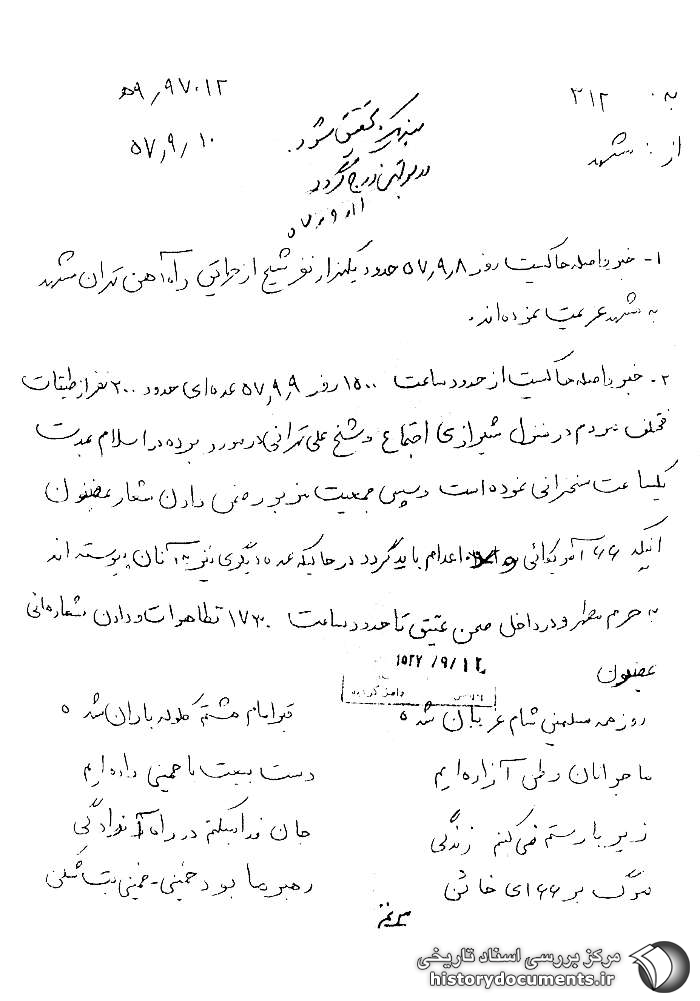 به: ۳۱۲
۵۹٫۹۷۰۱۲
از: مشهد
۵۷٫۹٫۱۰
تحقیق شود.
در بولتن درج گردد
۱- خبر واصله حاکیست روز ۵۷٫۹٫۸ حدود یکهزار نفر شیخ از راه آهن تهران مشهد
به مشهد عزیمت نموده‌اند.
۲- خبر واصله حاکیست از حدود ساعت ۱۵۰۰ روز ۵۷٫۹٫۹ عده‌ای حدود ۲۰۰ نفر از طبقات
مختلف مردم در منزل شیرازی اجتماع و شیخ علی تهرانی در مورد برده در اسلام مدت
یکساعت سخنرانی نموده است و سپس جمعیت مزبور ضمن دادن شعار بمضمون
اینکه ۶۶ آمریکائی اعدام باید گردد در حالیکه عده دیگری نیز به آنان پیوسته‌اند
به حرم مطهر و در داخل صحن عتیق تا حدود ساعت ۱۷۳۰ تظاهرات و دادن شعارهائی
بمضمون
۱۵۲۷/۹/۱۲
روز همه مسلمین شام غریبان شد ۵ قبر امام هشتم گلوله باران شد ۵
ما جوانان وطن آزاده‌ایم دست بیعت با خمینی داده‌ایم
زیر بار ستم نمی‌کنم زندگی جان فدا میکنم در راه آزادگی
مرگ بر ۶۶ای خائن رهبر ما بود خمینی - خمینی بت شکن
مرکز بررسی اسناد تاریخی
historydocuments.ir